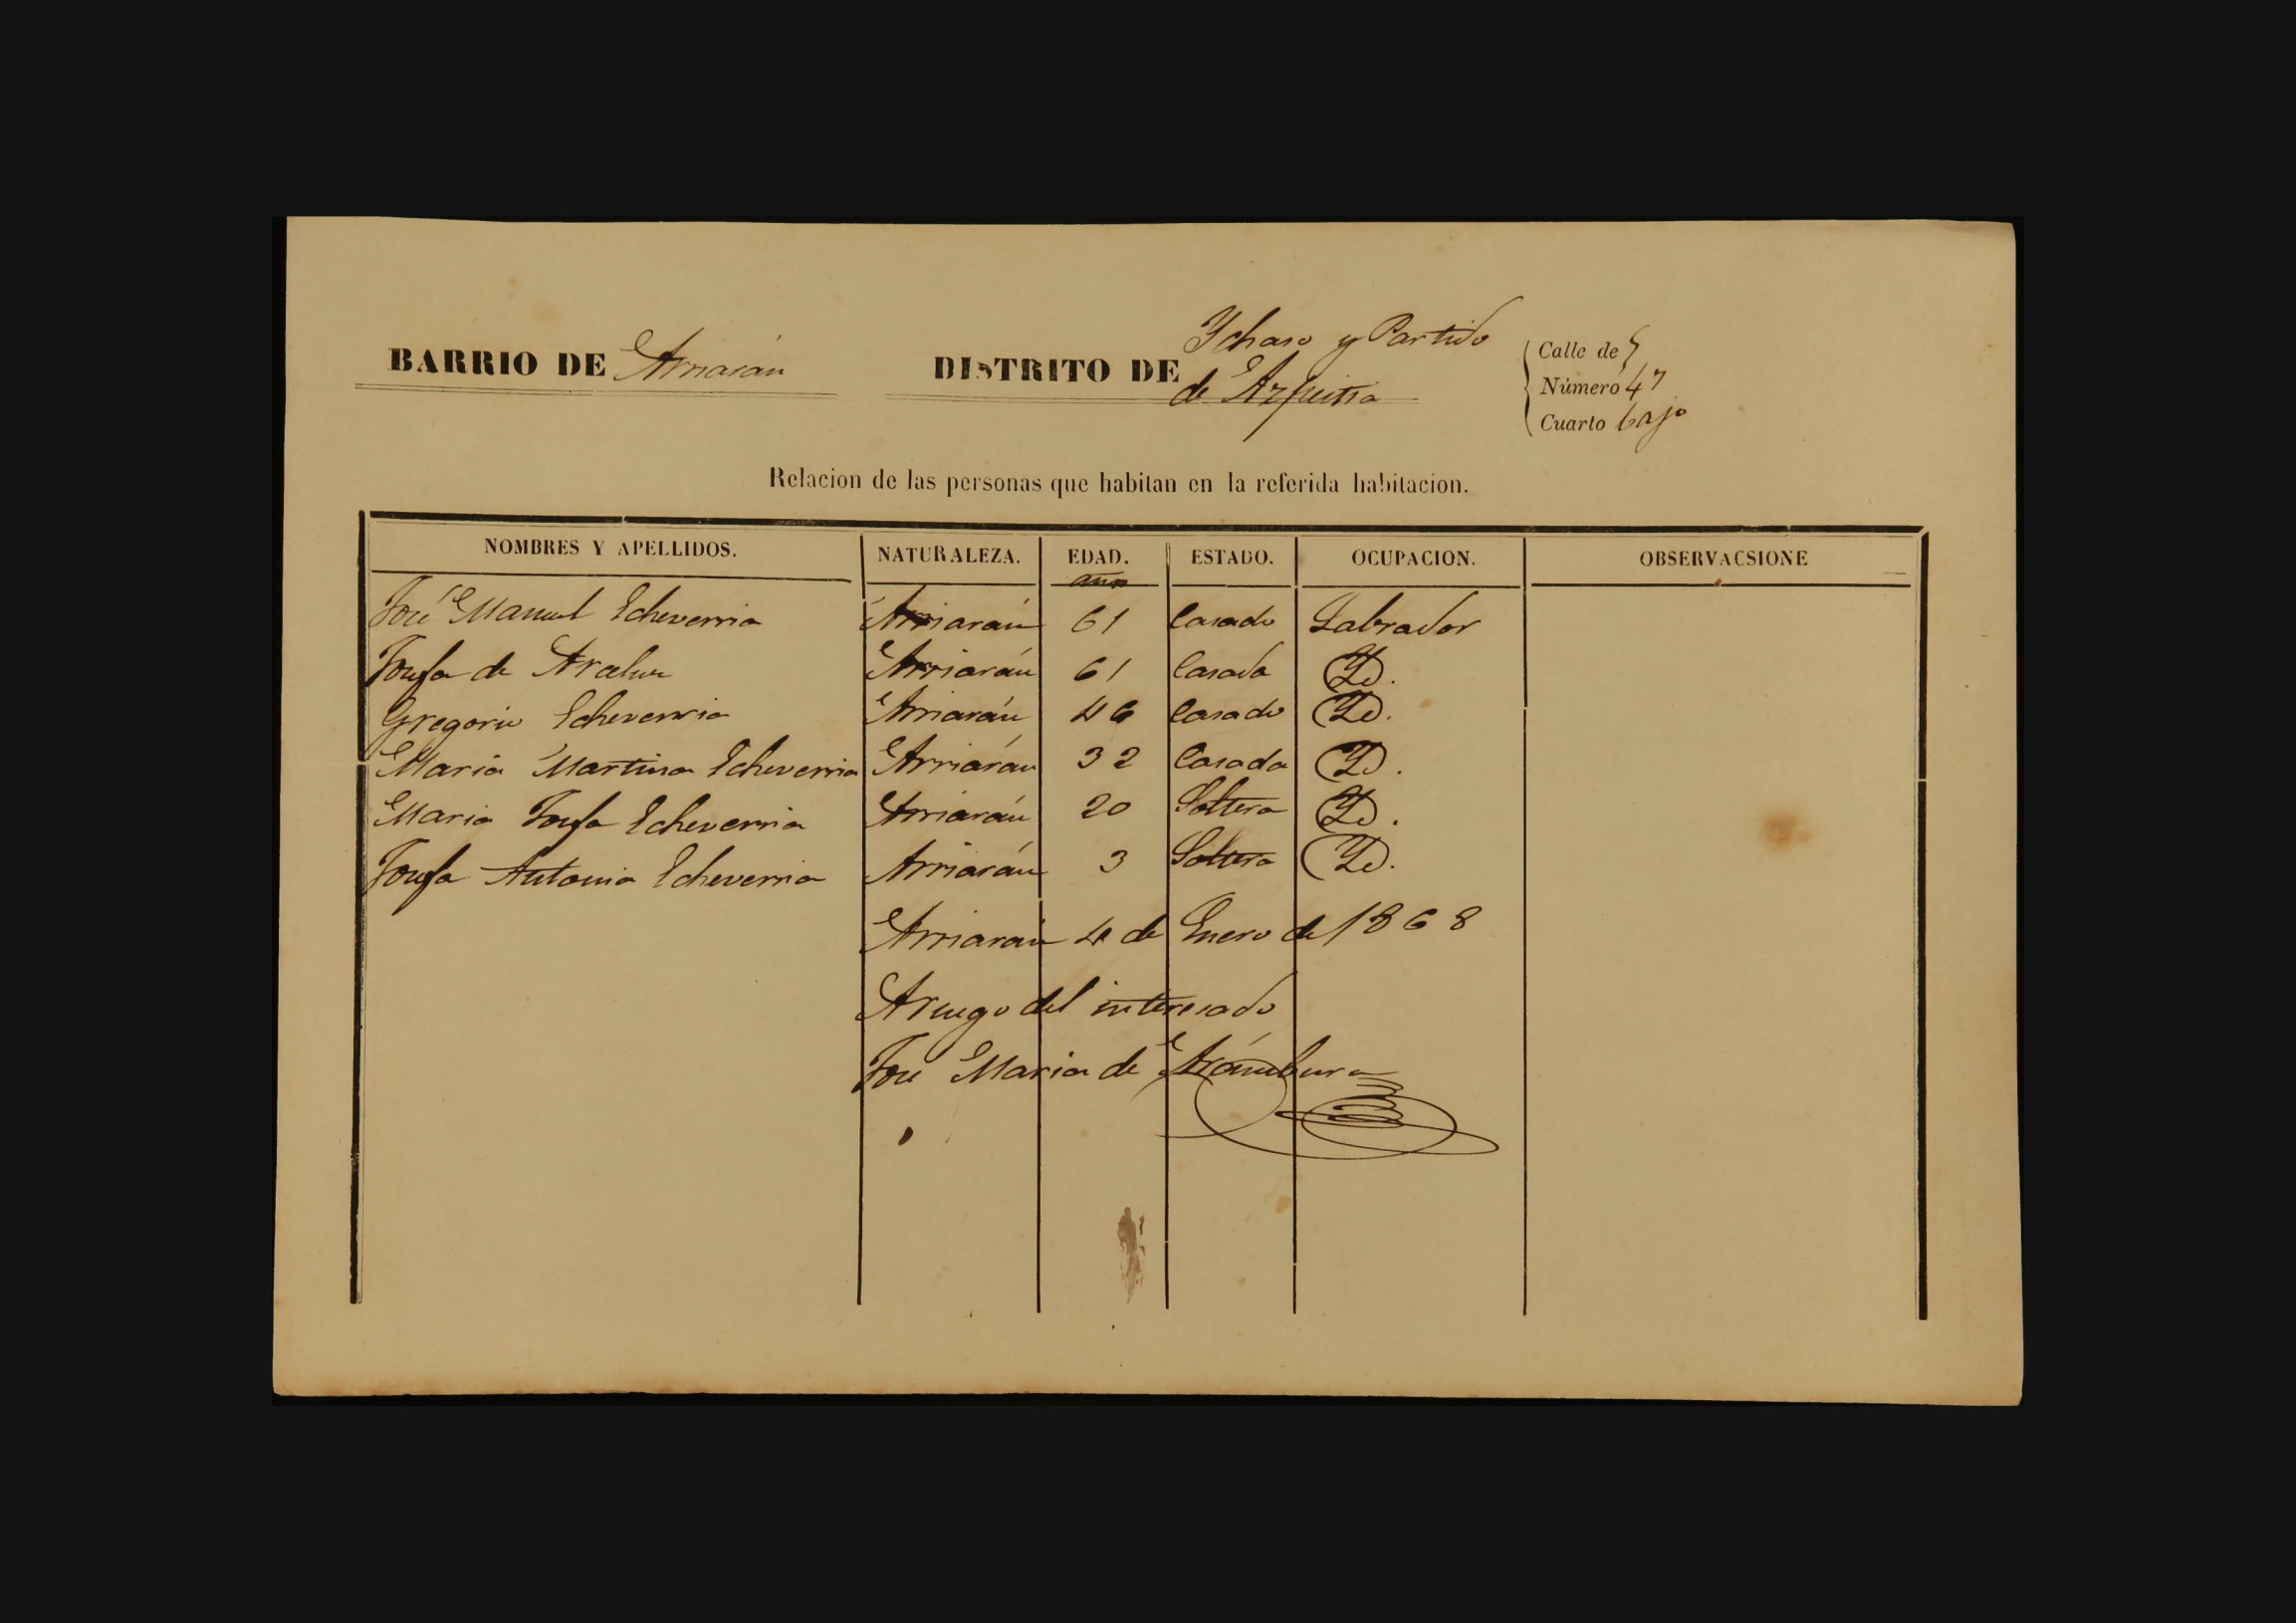 BARRIO DE Arriarán
DISTRITO DE Ychaso y Partido
de Azpeitia
Calle de
Número 47
Cuarto bajo
Relacion de las personas que habitan en la referida habitacion.
NOMBRES Y APELLIDOS. NATURALEZA. EDAD. ESTADO. OCUPACION. OBSERVACSIONE
años
José Manuel Echeverria Arriarán 61 Casado Labrador
Josefa de Arriarán 61 Casada Yd.
Gregorio Echeverria Arriarán 46 Casado Yd.
Maria Martina Echeverria Arriarán 32 Casada Yd.
Maria Josefa Echeverria Arriarán 20 Soltera Yd.
Josefa Antonia Echeverria Arriarán 3 Soltera Yd.
Arriarán 4 de Enero de 1868
A ruego del interesado
José Maria de Arámburu